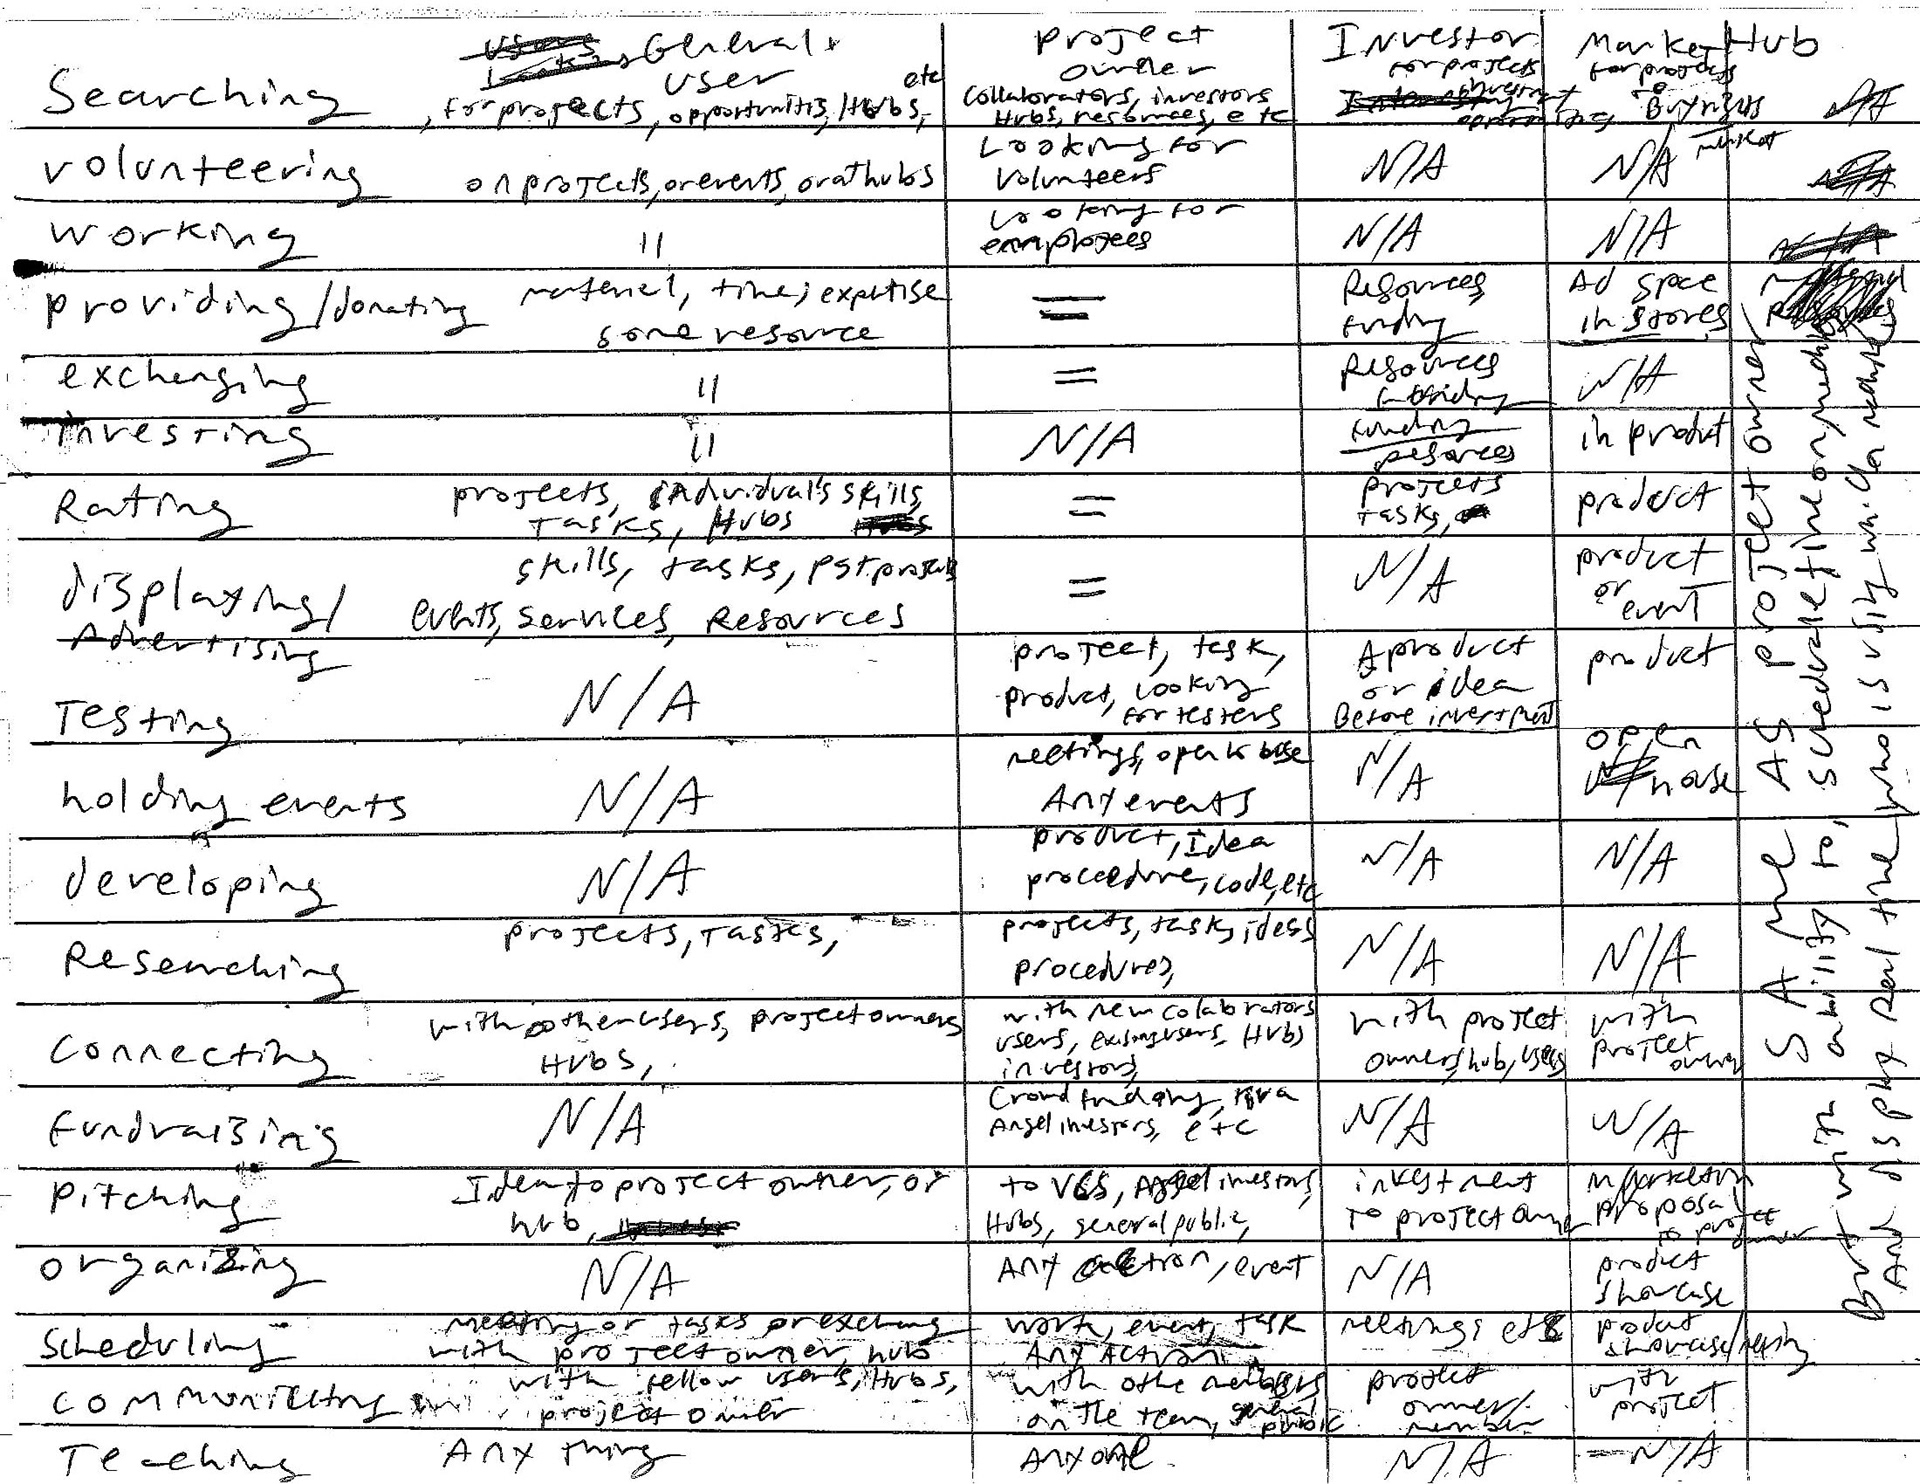 General
user
Project
owner
Investor
for projects
Market
for projects
Hub
Searching
for projects, opportunities, Hubs, etc
Collaborators, investors
Hubs, resources, etc
investment
to
Buy rights
market
N/A
volunteering
on projects, or events, or at hubs
Looking for
volunteers
N/A
N/A
N/A
working
"
Looking for
employees
N/A
N/A
N/A
providing/donating
material, time, expertise
some resource
=
Resources,
funding
Ad space
in stores
exchanging
"
=
Resources
funding
N/A
investing
"
N/A
funding
resources
in product
Rating
projects, individual's skills,
Tasks, Hubs
Hubs
=
projects
Tasks,
product
displaying/
Advertising
skills, tasks, pst projects
events, services, Resources
=
N/A
product
or
event
Testing
N/A
project, task,
product, looking
for testers
A product
or idea
Before investment
product
holding events
N/A
meetings, open house
Any events
N/A
open
house
developing
N/A
product, Idea
procedure, code, etc
N/A
N/A
Researching
projects, Tasks,
projects, tasks, ideas
procedures,
N/A
N/A
Connecting
with other users, project owners
Hubs,
with new colaborators
users, existing users, Hubs
investors,
with project
owners, hub, users
with
project
owner
fundraising
N/A
Crowd funding,
Angel investors, etc
N/A
N/A
Pitching
Idea to project owner, or
hub,
to VCS, Angel investors,
Hubs, general public,
investment
to project owner
Marketing
proposal
to project
owner
organizing
N/A
Any action, event
N/A
product
showcase
Scheduling
Meeting or tasks or exchang
with project owner, hubs
work, event, task
Any Action
meetings etc
product
showcase/meeting
communicating
with fellow users, Hubs,
project owner
with othe members
on the team, general
public
project
owner/
member
with
project
Teaching
Any thing
Anyone
N/A
N/A
SAME AS PROJECT owner
But with ability to, schedvale time on media
And display real time who is using which